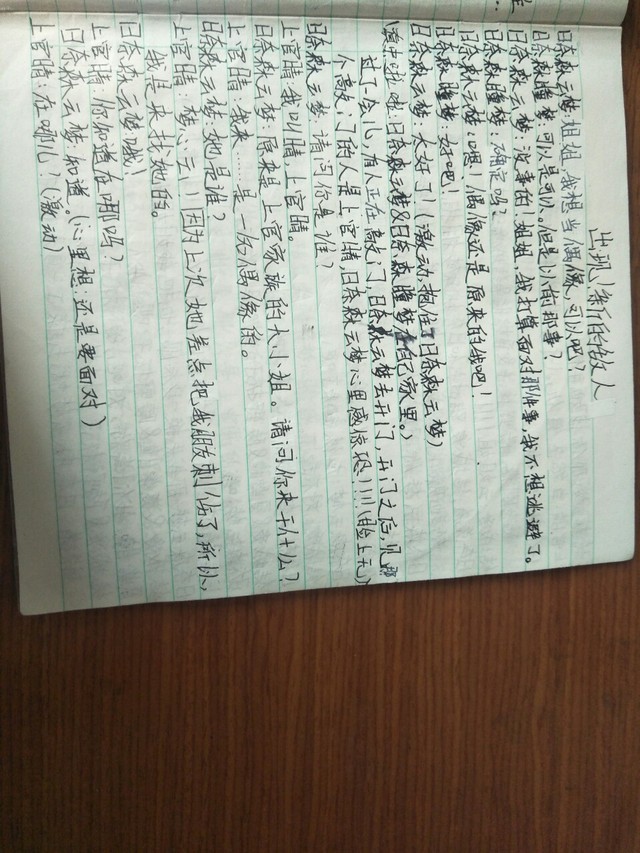 出现！亲们的敌人
日奈森云梦：姐姐，我想当偶像，可以吧？
日奈森瞳梦：可以是可以。但是以前那事？
日奈森云梦：没事的！姐姐，我打算面对那件事，我不想逃避了。
日奈森瞳梦：确定吗？
日奈森云梦：嗯，偶像还是原来的我吧！
日奈森瞳梦：好吧！
日奈森云梦：太好了！（激动抱住了日奈森云梦）
日奈森云梦&日奈森瞳梦在自己家里。）
过了会儿，有人正在敲门，日奈森云梦去开门，开门之后，见那
个敲门的人是上官晴，日奈森云梦心里感惊恐！！！！（脸上无）
日奈森云梦：请问你是谁？
上官晴：我叫晴上官晴。
日奈森云梦：原来是上官家族的大小姐。请问你来干什么？
上官晴：我来……是一次偶像的。
日奈森云梦：她是谁？
上官晴：梦心云！！因为上次她差点把我朋友刺伤了，所以，
我是来找她的。
日奈森云梦：哦！
上官晴：你知道在哪吗？
日奈森云梦：知道。（心里想：还是要面对）
上官晴：在哪儿！（激动）